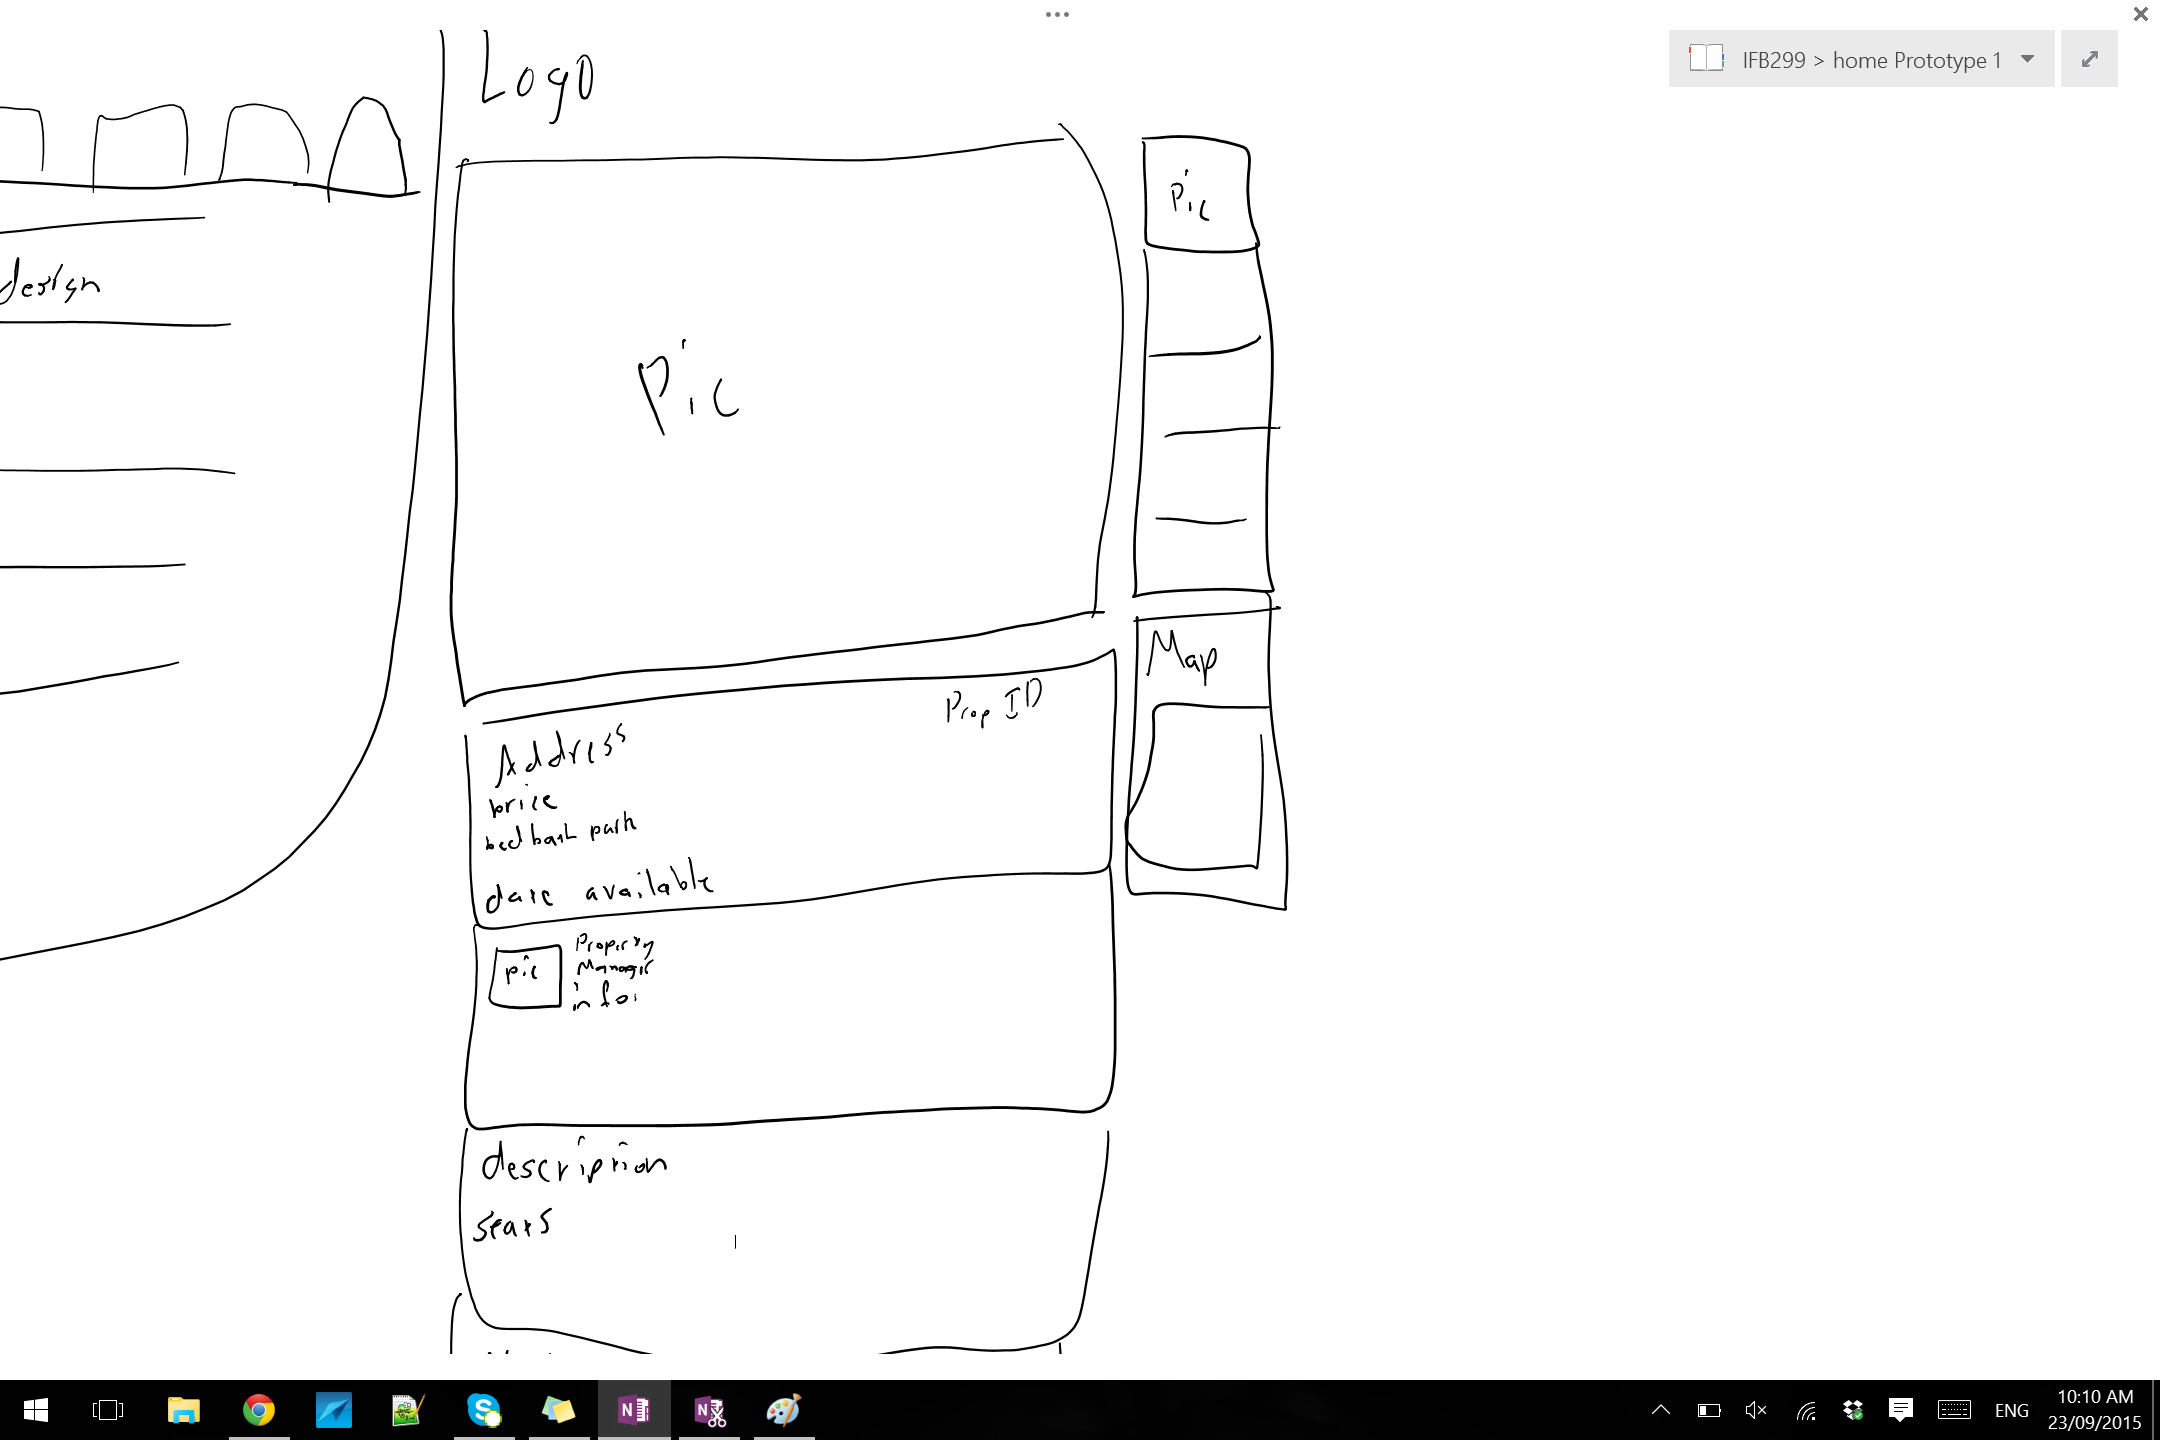 IFB299 > home Prototype 1
Logo
design
Pic
Pic
Map
Prop ID
Address
price
bed bath park
date available
pic
Property
Manager
info
description
stats
ENG
10:10 AM
23/09/2015